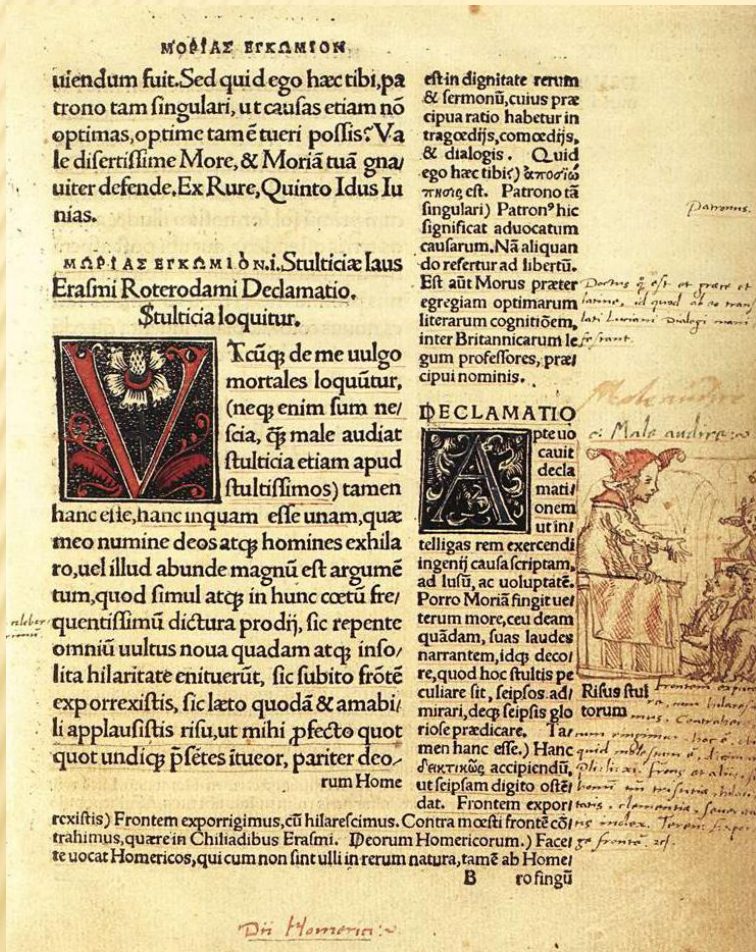 ΜΟΡΙΑΣ ΕΓΚΩΜΙΟΝ
uiendum fuit. Sed quid ego hæc tibi, pa
trono tam singulari, ut causas etiam nō
optimas, optime tamē tueri possis? Va
le disertissime More, & Moriā tuā gna/
uiter defende. Ex Rure, Quinto Idus Iu
nias.
ΜΩΡΙΑΣ ΕΓΚΩΜΙΟΝ .i. Stulticiæ laus
Erasmi Roterodami Declamatio.
Stulticia loquitur.
VTcūq; de me uulgo
mortales loquūtur,
(neq; enim sum ne/
scia, q̄ꝫ male audiat
stulticia etiam apud
stultissimos) tamen
hanc esse, hanc inquam esse unam, quæ
meo numine deos atq; homines exhila
ro, uel illud abunde magnū est argumē
tum, quod simul atq; in hunc cœtū fre/
quentissimū dictura prodij, sic repente
omniū uultus noua quadam atq; inso/
lita hilaritate enituerūt, sic subito frōtē
exporrexistis, sic læto quodā & amabi/
li applausistis risu, ut mihi ꝓfecto quot
quot undiq; p̄sētes ītueor, pariter deo/
rum Home
est in dignitate rerum
& sermonū, cuius præ
cipua ratio habetur in
tragœdijs, comœdijs,
& dialogis. Quid
ego hæc tibi) ἀποσιώ
πησις est. Patrono tā
singulari) Patronꝰ hic
significat aduocatum
causarum. Nā aliquan
do refertur ad libertū.
Est aūt Morus præter
egregiam optimarum
literarum cognitiōem,
inter Britannicarum le
gum professores, præ/
cipui nominis.
DECLAMATIO
Apte uo
cauit
decla
mati/
onem
ut in/
telligas rem exercendi
ingenij causa scriptam,
ad lusū, ac uoluptatē.
Porro Moriā fingit ue/
terum more, ceu deam
quādam, suas laudes
narrantem, idq; deco/
re, quod hoc stultis pe
culiare sit, seipsos ad/
mirari, deq; seipsis glo
riose prædicare. Ta/
men hanc esse.) Hanc
δεικτικῶς accipiendū,
ut seipsam digito ostē/
dat. Frontem expor/
rexistis) Frontem exporrigimus, cū hilarescimus. Contra mœsti frontē cō/
trahimus, quære in Chiliadibus Erasmi. Deorum Homericorum.) Face/
te uocat Homericos, qui cum non sint ulli in rerum natura, tamē ab Home/
B ro fingū
Patronus.
Doctus q̄ est et græce et
latine, id quod ab eo trans
lati Luciani Dialogi mani
festant.
Male audire
Risus stul
torum
Dii Homerici